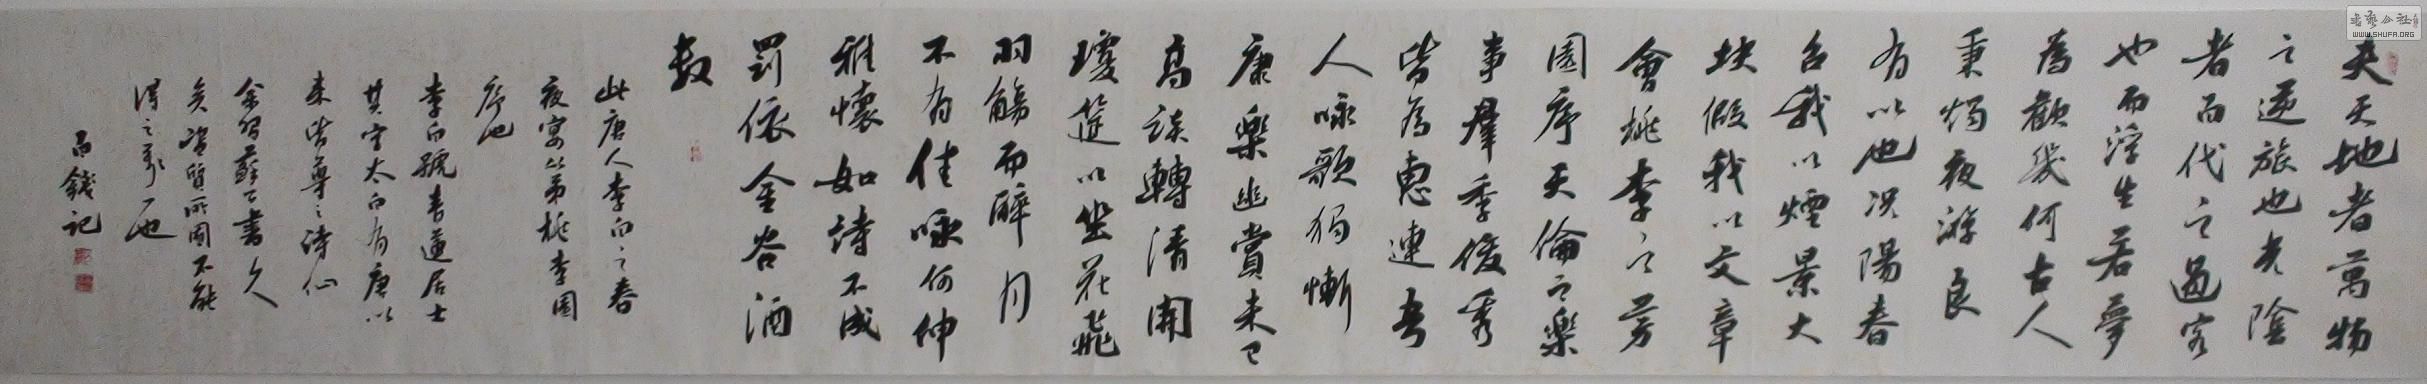 夫天地者萬物
之逆旅也光陰
者百代之過客
也而浮生若夢
為歡幾何古人
秉燭夜游良
有以也況陽春
召我以煙景大
块假我以文章
會桃李之芳
園序天倫之樂
事羣季俊秀
皆為惠連吾
人咏歌獨慚
康樂幽賞未已
高談轉清開
瓊筵以坐花飛
羽觴而醉月
不有佳咏何伸
雅懷如詩不成
罰依金谷酒
數
此唐人李白之春
夜宴從弟桃李園
序也
李白號青蓮居士
其字太白有唐以
來皆尊之詩仙
余習蘇公書久
矣資質所囿不能
得之萬一也
昌記
书艺公社
WWW.SHUFA.ORG